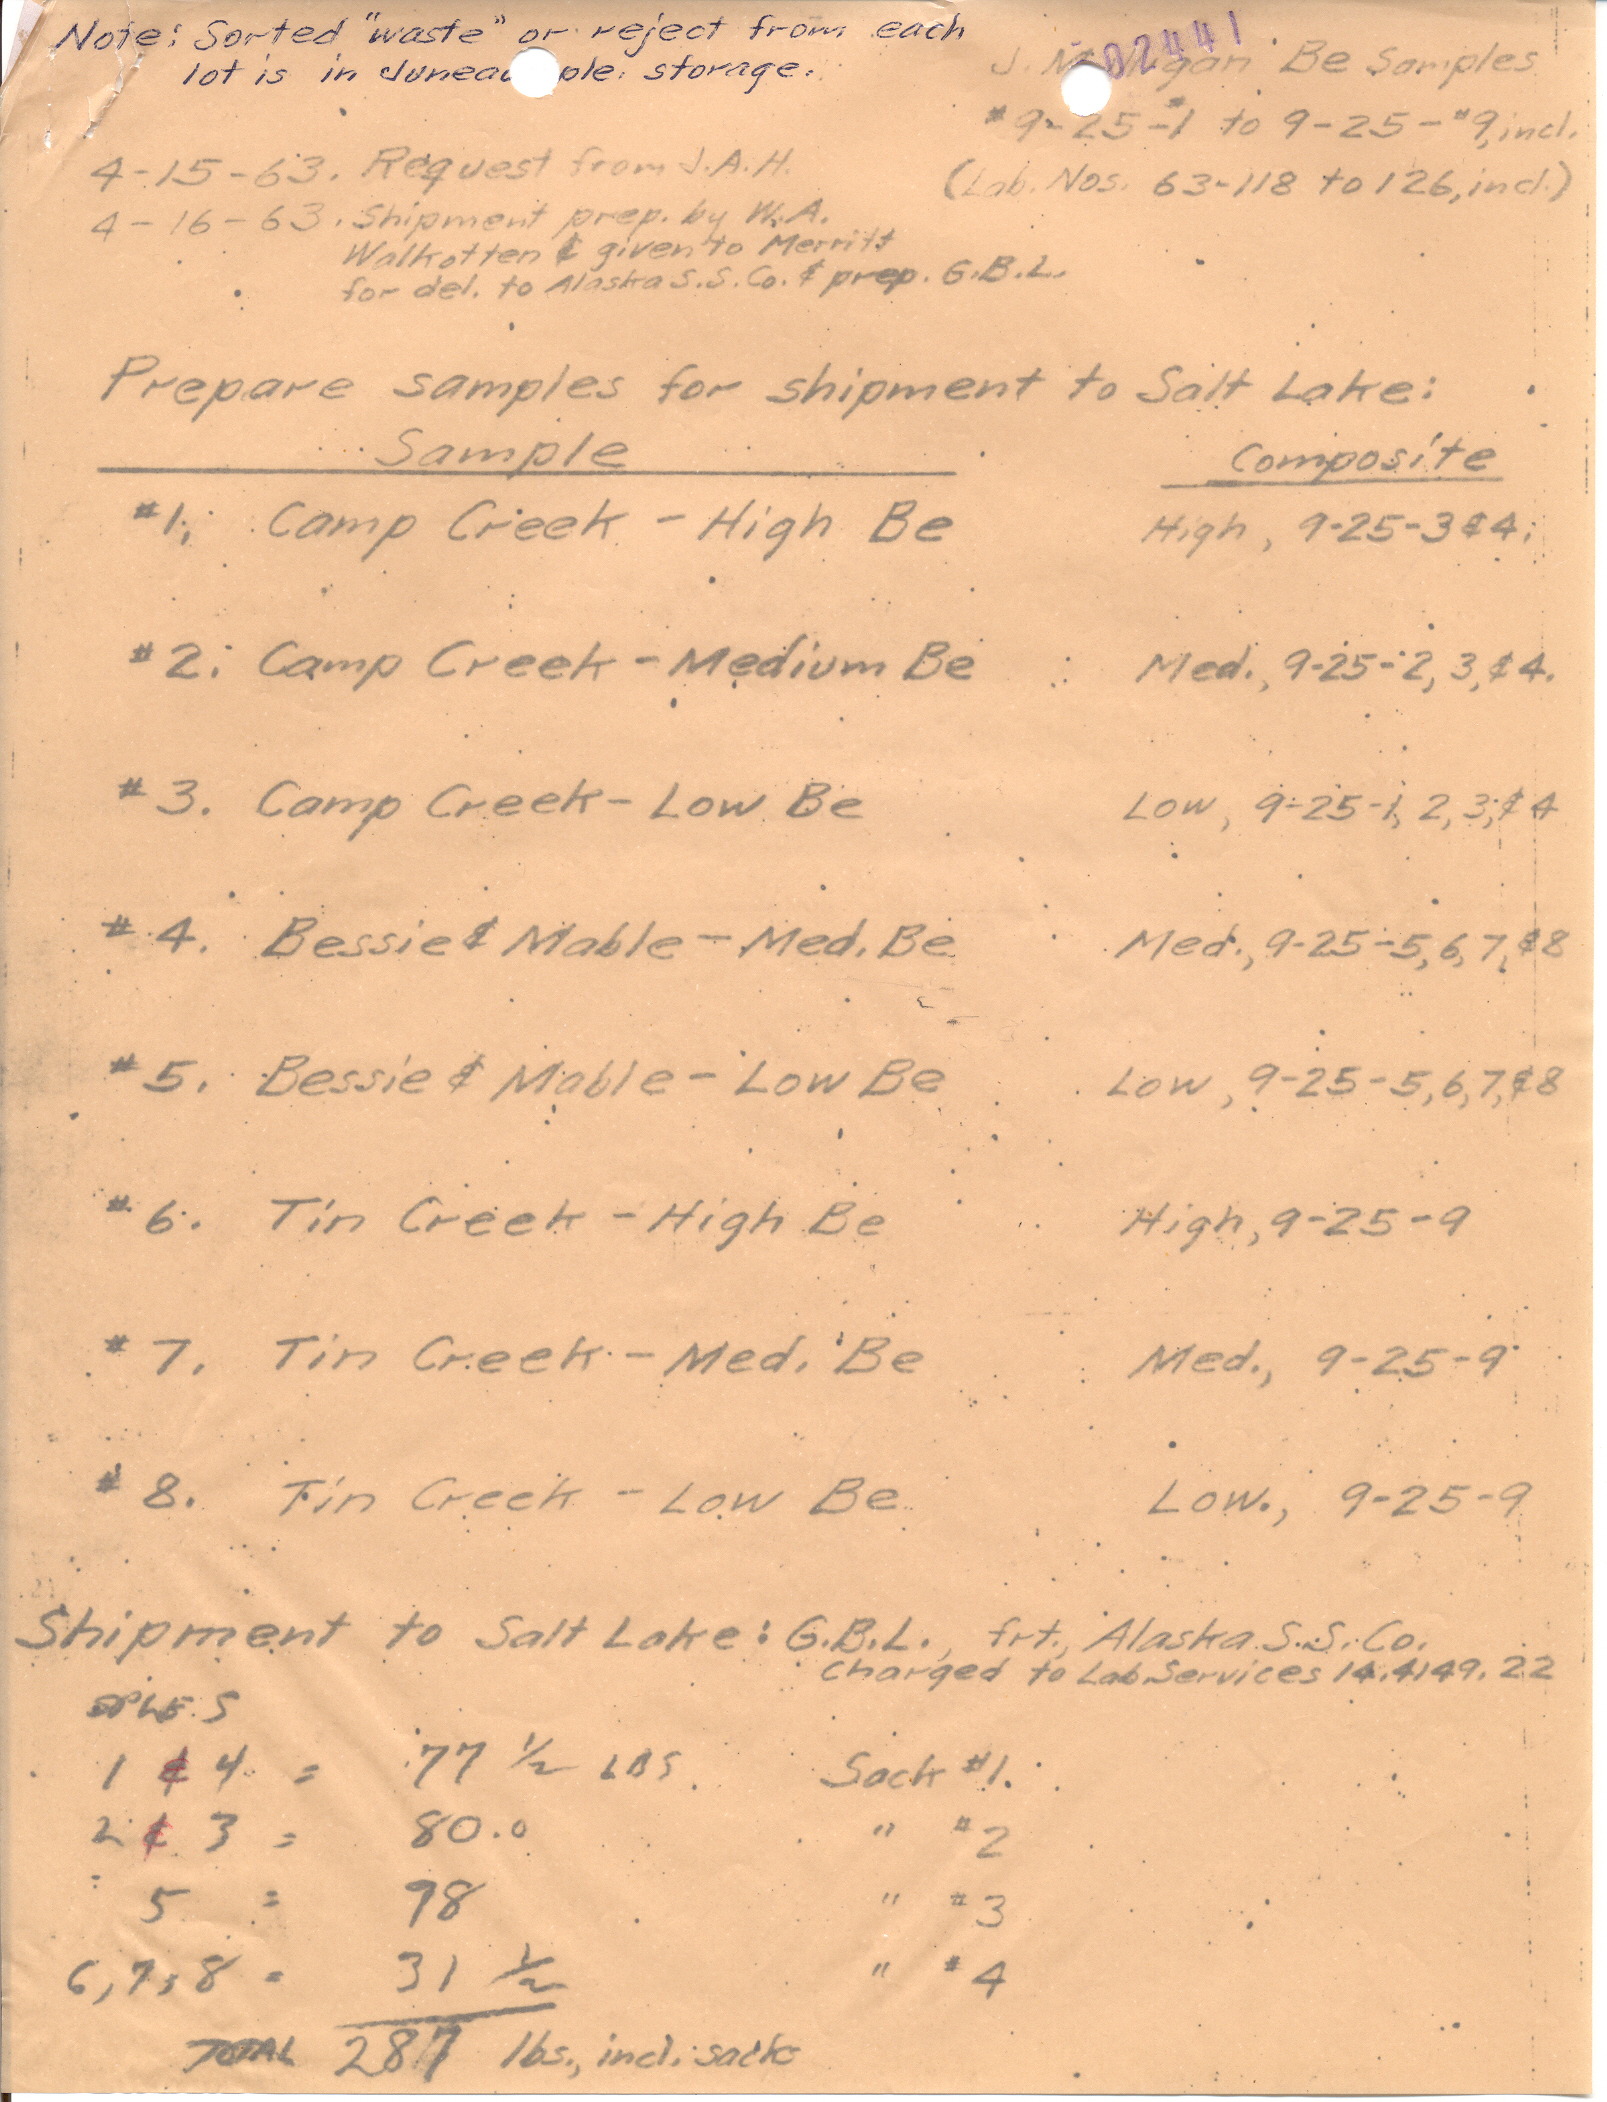 Note: Sorted "waste" or reject from each
lot is in Juneau ple. storage.
02441
J. M gan Be Samples
#9-25-#1 to 9-25-#9, incl.
(Lab. Nos. 63-118 to 126, incl.)
4-15-63. Request from J.A.H.
4-16-63. Shipment prep. by W.A.
Walkotten & given to Merritt
for del. to Alaska S.S. Co. & prep. G.B.L.
Prepare samples for shipment to Salt Lake:
Sample Composite
#1. Camp Creek - High Be High, 9-25-3 & 4.
#2. Camp Creek - Medium Be Med., 9-25-2, 3, & 4.
#3. Camp Creek - Low Be Low, 9-25-1, 2, 3, & 4
#4. Bessie & Mable - Med. Be Med., 9-25-5, 6, 7, & 8
#5. Bessie & Mable - Low Be Low, 9-25-5, 6, 7, & 8
#6. Tin Creek - High Be High, 9-25-9
#7. Tin Creek - Med. Be Med., 9-25-9
#8. Tin Creek - Low Be Low., 9-25-9
Shipment to Salt Lake: G.B.L., frt., Alaska S.S. Co.
charged to Lab Services 14.4149.22
SPLES
1 & 4 = 77 1/2 LBS. Sack #1.
2 & 3 = 80.0 " #2
5 = 98 " #3
6, 7, 8 = 31 1/2 " #4
TOTAL 287 lbs., incl. sacks